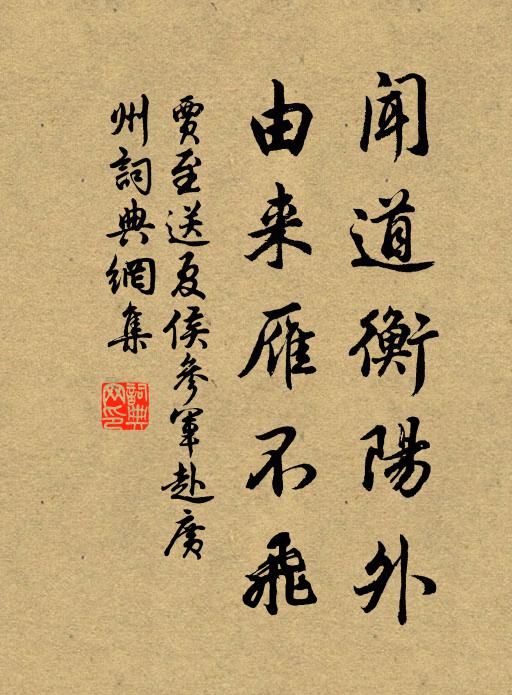 聞道衡陽外
由来雁不飛
賈至送夏侯參軍赴廣
州詞典網集
詞典
网印